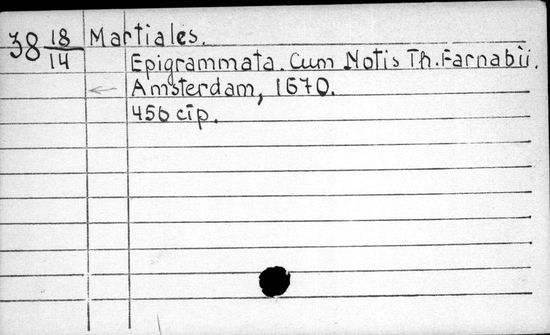 38 18/14 Martiales.
Epigrammata. Cum Notis Th. Farnabii.
Amsterdam, 1670.
456 стр.